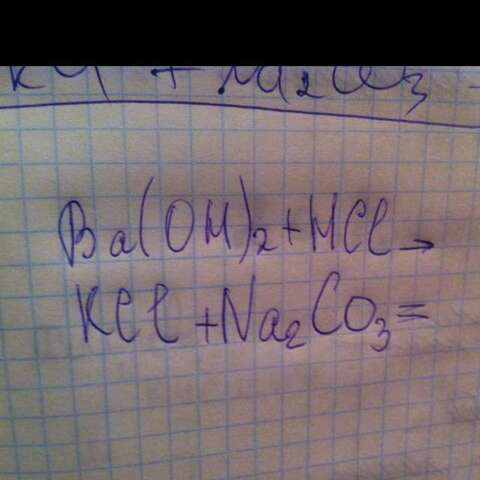 KCl + Na₂CO₃ -
Ba(OH)₂+HCl→
KCl+Na₂CO₃=